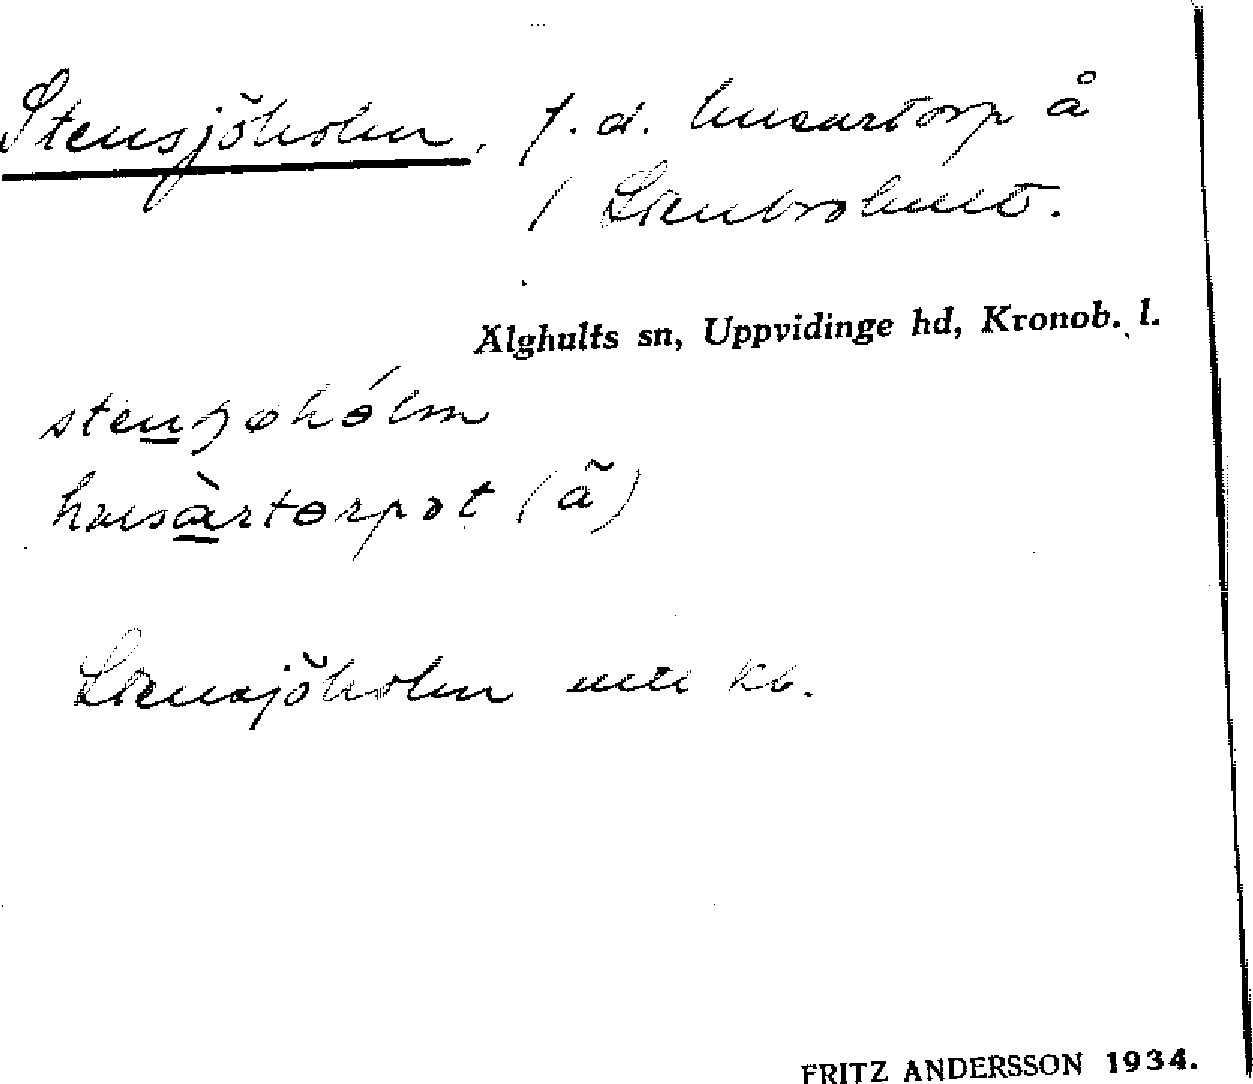 Stensjöholm, f.d. husartorp å
/ Stenbrohult.
Älghults sn, Uppvidinge hd, Kronob. l.
husàrtorpət (ã)
Stensjöholm mtl kb.
FRITZ ANDERSSON 1934.